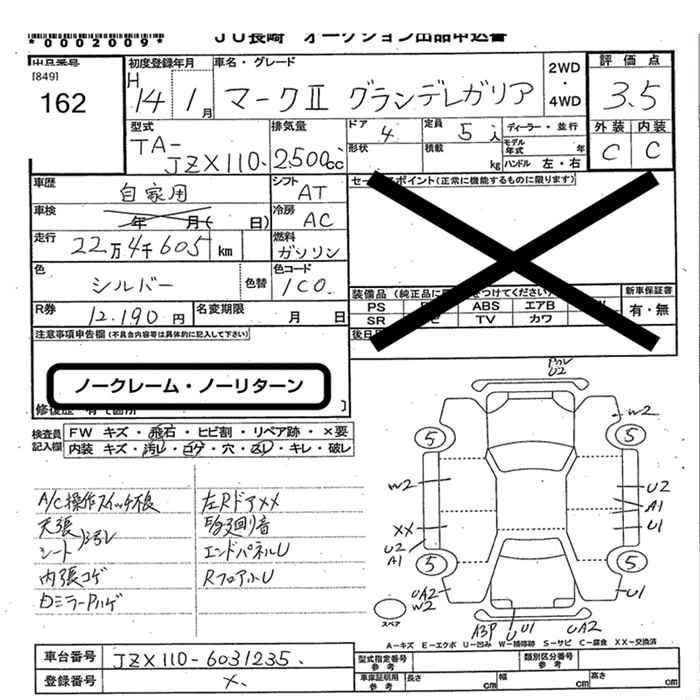 *0002009*
JU長崎 オークション出品申込書
[849]
162
初度登録年月
H 14 1月
車名・グレード
マークⅡ グランデレガリア
2WD・4WD
評価点
3.5
外装 内装
C C
型式
TA-JZX110-
排気量
2,500cc
ドア 4
形状
定員 5人
積載 kg
ディーラー・並行
モデル年式 年
ハンドル 左・右
車歴
自家用
シフト
AT
車検 年 月( 日)
冷房
AC
走行
22万4千605 km
燃料
ガソリン
色
シルバー
色替
色コード
1C0.
R券
12,190円
名変期限
月 日
セールスポイント(正常に機能するものに限ります)
装備品
PS ABS エアB
SR TV カワ
新車保証書
有・無
注意事項申告欄(不具合内容等は具体的に記入して下さい)
ノークレーム・ノーリターン
検査員記入欄
FW キズ・飛石・ヒビ割・リペア跡・×要
内装 キズ・汚レ・コゲ・穴・スレ・キレ・破レ
A/C操作スイッチ不良
天張
シート 汚レ
内張コゲ
左Rドアxx
エンドパネルU
RフロアーU
U2
W2
5
5
W2
U2
A1
XX
U1
U2
A1
5
5
UA2
W2
U1
スペア
A3P
U
U1
UA2
A-キズ E-エクボ U-凹み W-補修跡 S-サビ C-腐食 XX-交換済
車台番号
JZX110-6031235.
登録番号
x.
型式指定番号
参考
類別区分番号
参考
車庫証明用
参考
長さ cm
幅 cm
高さ cm